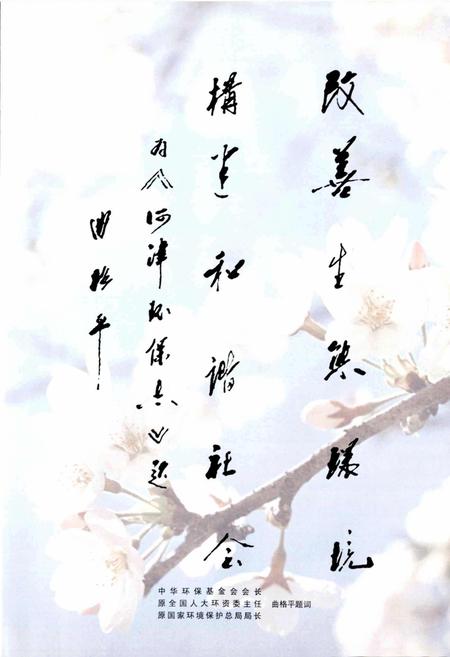 改善生態環境
構建和諧社会
为《河津环保志》题
曲格平
中华环保基金会会长
原全国人大环资委主任 曲格平题词
原国家环境保护总局局长